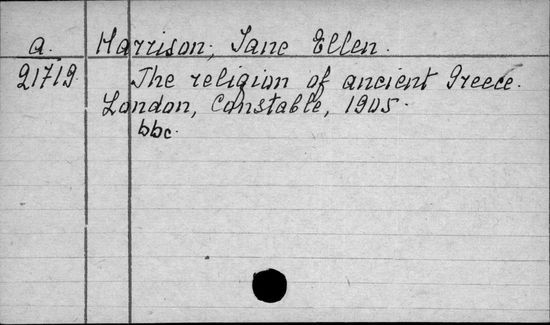 a. Harrison, Jane Ellen.
21719. The religion of ancient Greece.
London, Constable, 1905.
bbc.